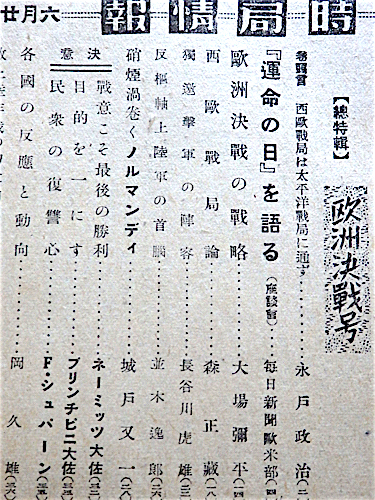 時局情報
六月廿
欧洲決戰号
【總特輯】
卷頭言 西歐戰局は太平洋戰局に通ず………永戸政治(二
『運命の日』を語る(座談會)……毎日新聞歐米部(四
歐洲決戰の戰略………大場彌平(四
西歐戰局論………森正藏(八
獨邀擊軍の陣容………長谷川虎雄(三
反樞軸上陸軍の首腦………並木逸郎(六
硝煙渦巻くノルマンディ………城戸又一(八
決意
戰意こそ最後の勝利………ネーミッツ大佐(三
目的を一にす………プリンチピニ大佐(三
民衆の復讐心………F・シュパーン(三五
各國の反應と動向………岡久雄(三六